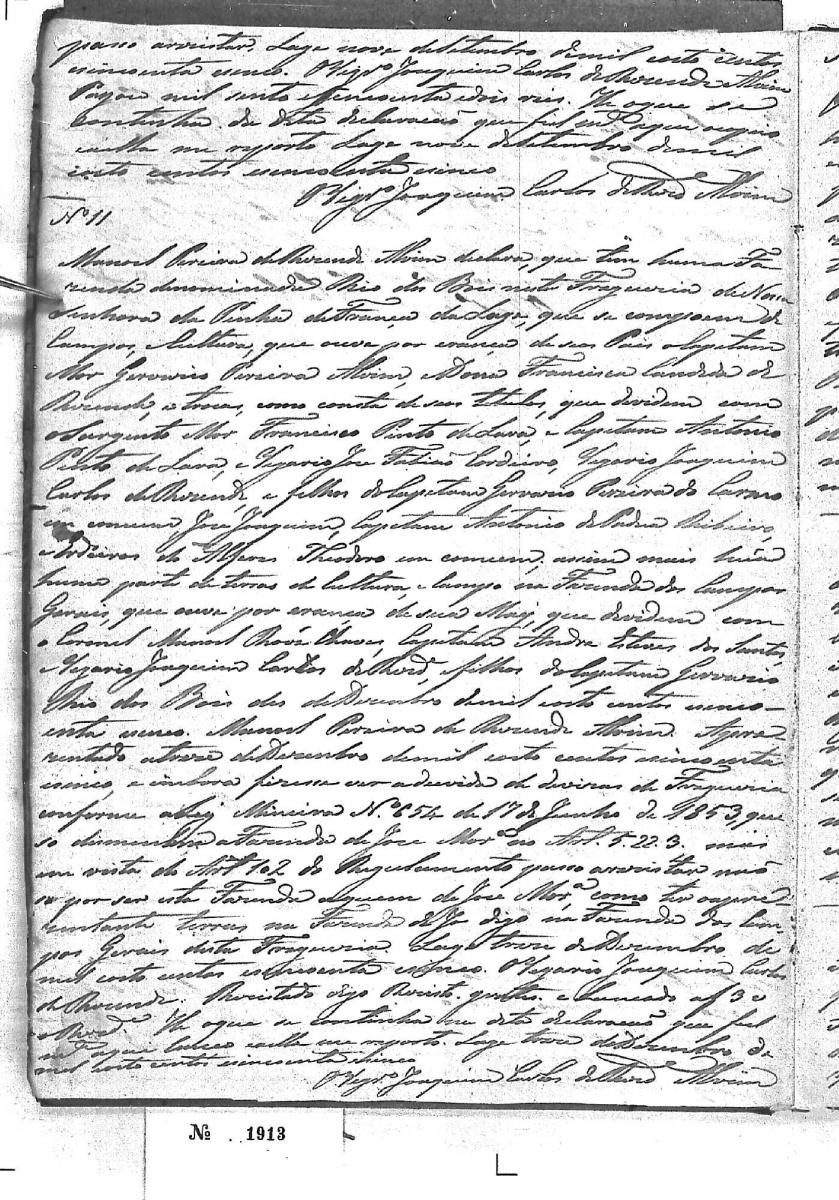 passo arezistar. Lage nove deSetembro demil oito centos
esincoenta esinco. OVigrº Joaquim Carlos deRezende Alvim
Pagou mil sento e secenta edois reis. He oque se
continha da dita declaração que fiel
eaella me reporto Lage nove deSetembro demil
oito centos esincoenta esinco
OVigrº Joaquim Carlos de Rezde Alvim
Nº 11
Manoel Pereira deRezende Alvim declara, que tem huma Fa-
zenda denominada Rio dos Bois nesta Freguezia de Nossa
Senhora da Penha deFrança da Lage, que se compoem de
Campos, eCultura, que ouve por erança de seus Pais oCapitam
Mor Gervazio Pereira Alvim, eDona Francisca Candida de
Rezende, etrocas, como consta de seus titulos, que devidem com
oSargento Mor Francisco Pinto deLara, e Capitam Antonio
Pinto de Lara, e Vegario Joze Fabião Cordeiro, Vegario Joaquim
Carlos deRezende, e filhos doCapitam Gervazio Pereira do Carmo
em comum José Joaquim, Capitam Antonio dePadua Ribeiro,
eerdeiros do Alferes Theodoro em comum, assim mais
huma parte de terras de Cultura, eCampo na Fazenda dos Campos
Gerais, que ouve por erança de sua Maj, que devidem com
o Coronel Manoel Chaves, Capitam Andre Esteves dos Santos,
eVegario Joaquim Carlos de Rezde, efilhos doCapitam Gervazio
Rio dos Bois des deDezembro demil oito centos esinco-
enta esinco. Manoel Pereira de Rezende Alvim. Aprez-
zentado atreze deDezembro demil oito centos esincoenta
esinco, e embora fizesse ver adevida de devizas de Freguezia
conforme aLey Mineira Nº 654 de 17 de Junho de 1853, que
so dismembra aFazenda de Joze Morª no Art. 5. 22. 3. mais
em vista do Artº 102 do Regulamento passo arezistar não
so por ser esta Fazenda aquem de Joze Morª, como ter oaprez-
entante terras na Fazenda de Je digo na Fazenda dos Cam-
pos Gerais desta Freguezia. Lage treze de Dezembro de
mil oito centos esincoenta esinco. OVegario Joaquim Carlos
de Rezende. digo e af 3º
He oque se continha em dita declaração que fiel
aqui lanceo eaella me reporto. Lage treze deDezembro de
mil oito centos esincoenta esinco
OVigrº Joaquim Carlos deRezde Alvim
№ 1913